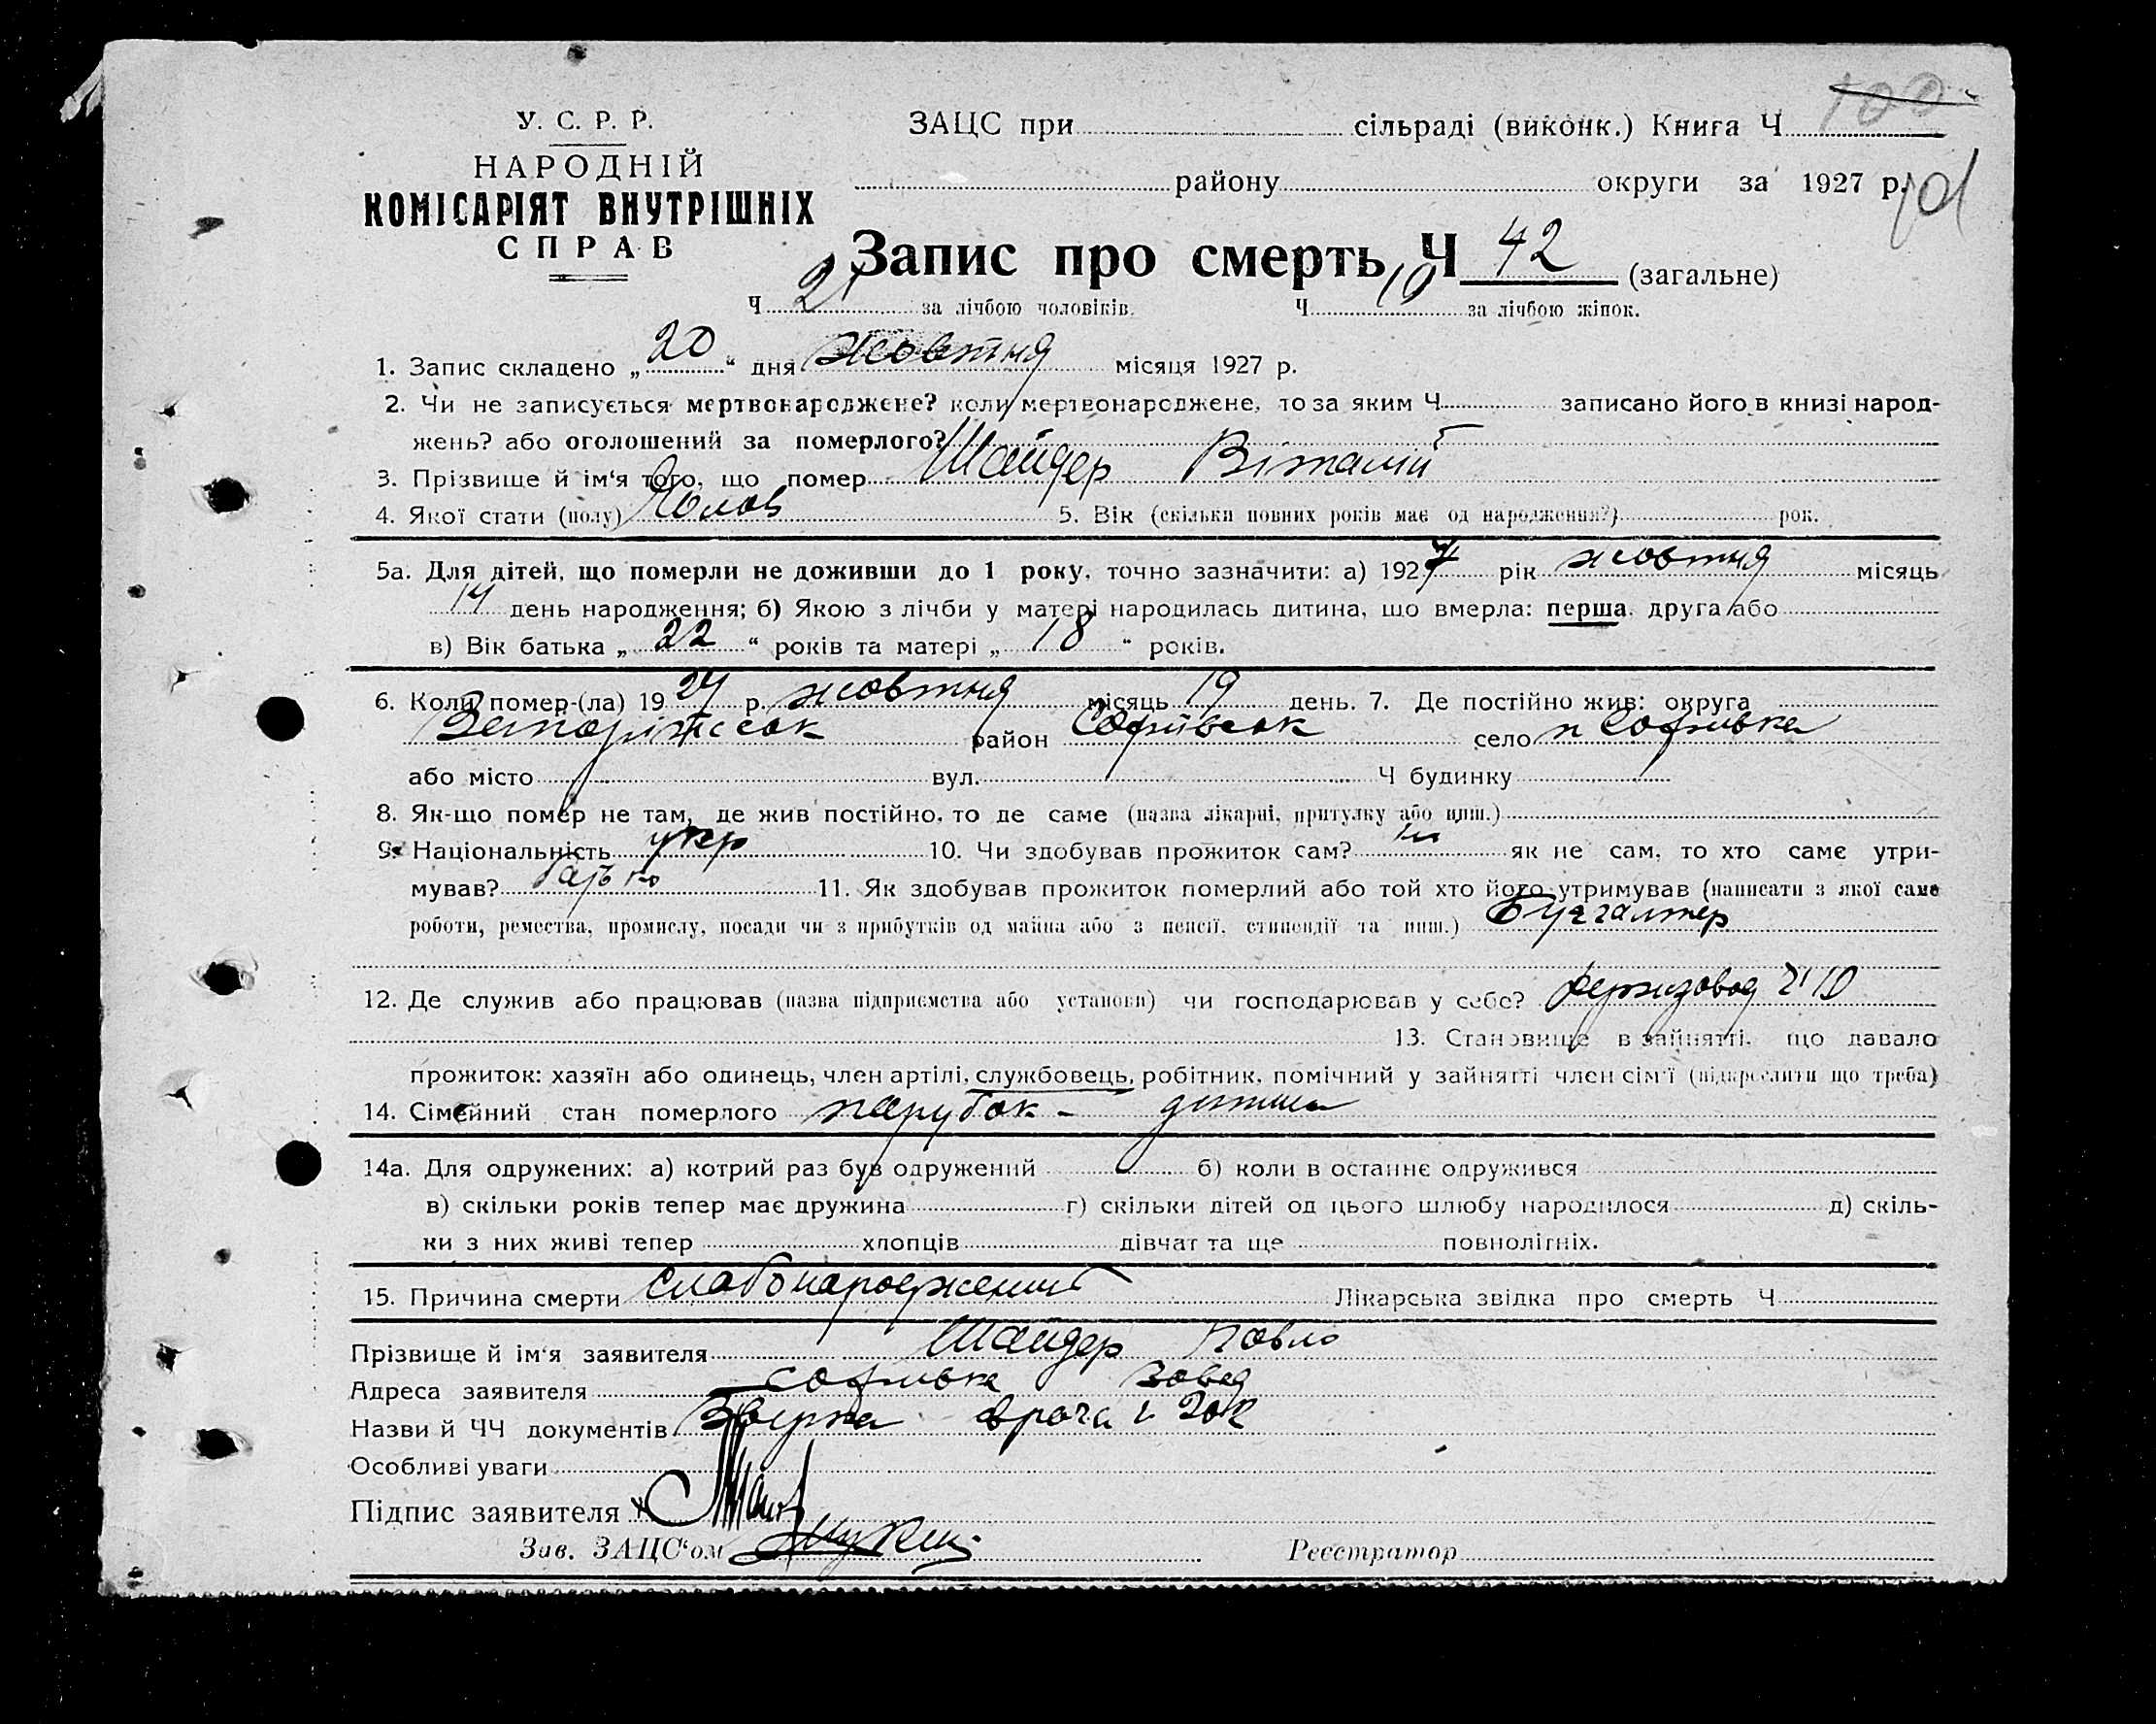 100
У. С. Р. Р.
ЗАЦС при сільраді (виконк.) Книга Ч
НАРОДНІЙ
району округи за 1927 р.
101
КОМІСАРІЯТ ВНУТРІШНІХ
СПРАВ
Запис про смерть Ч 42 (загальне)
Ч за лічбою чоловіків. Ч 19 за лічбою жінок.
1. Запис складено „ 20 “ дня жовтня місяця 1927 р.
2. Чи не записується мертвонароджене? коли мертвонароджене, то за яким Ч записано його в книзі народ-
жень? або оголошений за померлого?
3. Прізвище й ім‘я того, що помер Шайдер Віталій
4. Якої стати (полу) Чолов 5. Вік (скільки повних років має од народження?) рок.
5а. Для дітей, що померли не доживши до 1 року, точно зазначити: а) 1927 рік жовтня місяць
14 день народження; б) Якою з лічби у матері народилась дитина, що вмерла: перша, друга або
в) Вік батька „ 22 “ років та матері „ 18 “ років.
6. Коли помер-(ла) 1927 р. жовтня місяць 19 день. 7. Де постійно жив: округа
Запоріжськ район Софіївськ село п Софіївка
або місто вул. Ч будинку
8. Як-що помер не там, де жив постійно, то де саме (назва лікарні, притулку або инш.)
9. Національність укр 10. Чи здобував прожиток сам? ні як не сам, то хто саме утри-
мував? батько 11. Як здобував прожиток померлий або той хто його утримував (написати з якої саме
роботи, ремества, промислу, посади чи з прибутків од майна або з пенсії, стипендії та инш.) Бухгалтер
12. Де служив або працював (назва підприємства або установи) чи господарював у себе?
13. Становище в зайнятті, що давало
прожиток: хазяїн або одинець, член артілі, службовець, робітник, помічний у зайнятті член сім‘ї (підкреслити що треба)
14. Сімейний стан померлого парубок - дитина
14а. Для одружених: а) котрий раз був одружений б) коли в останнє одружився
в) скільки років тепер має дружина г) скільки дітей од цього шлюбу народилося д) скіль-
ки з них живі тепер хлопців дівчат та ще повнолітніх.
15. Причина смерти слабонароджений Лікарська звідка про смерть Ч
Прізвище й ім‘я заявителя Шайдер Павло
Адреса заявителя Софіївка завод
Назви й ЧЧ документів врача
Особливі уваги
Підпис заявителя
Зав. ЗАЦС‘ом Реєстратор